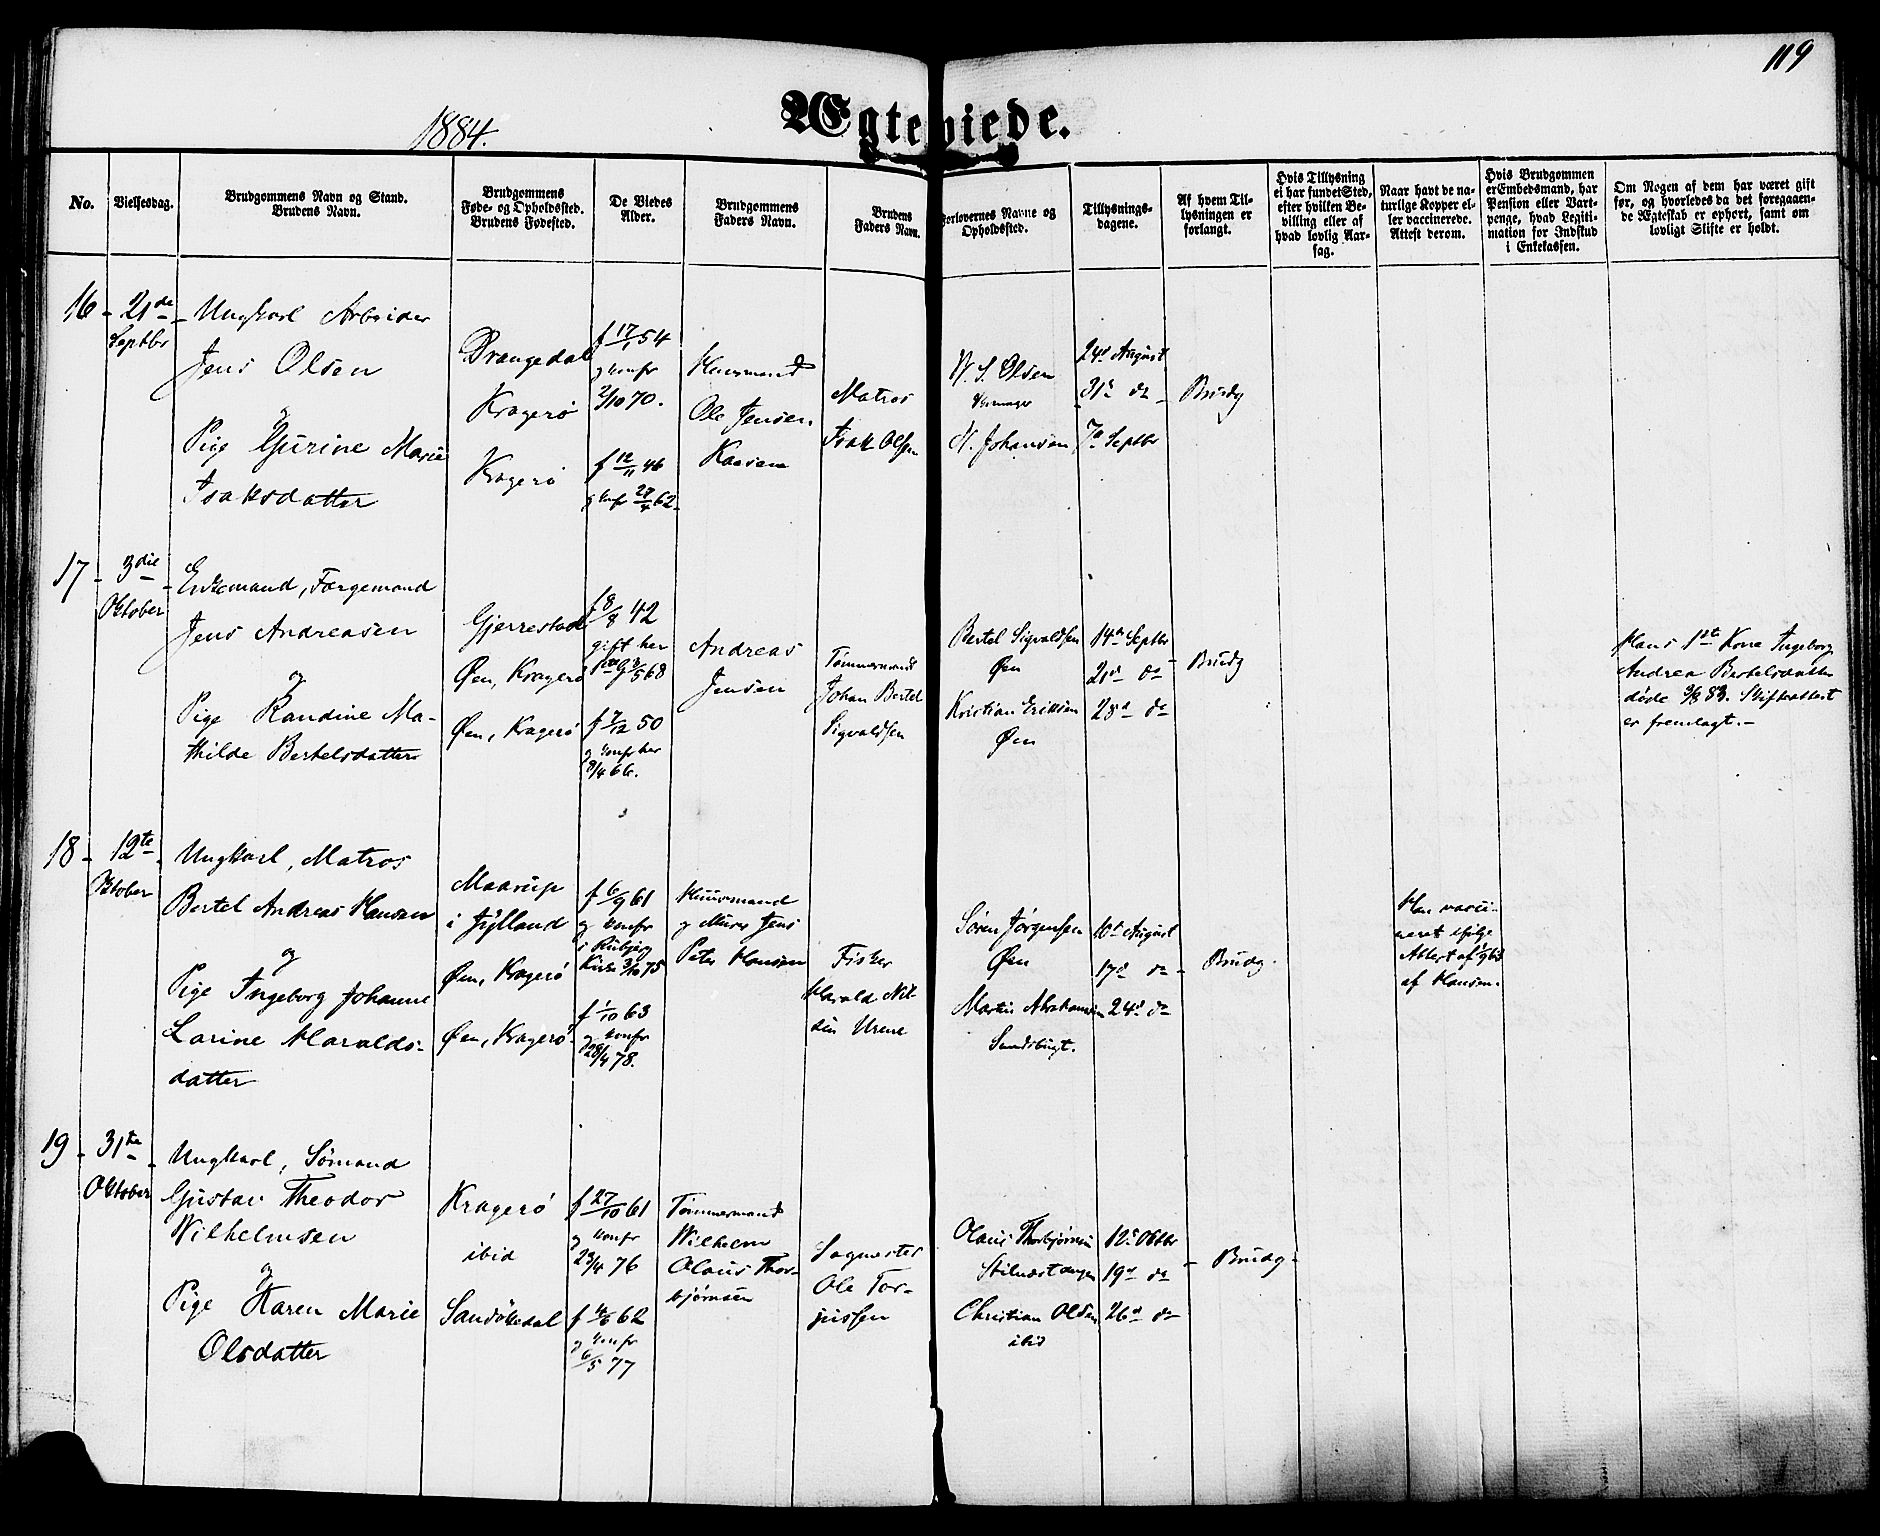 119
1884.
Ægteviede.
No.
Vielsesdag.
Brudgommens Navn og Stand.
Brudens Navn.
Brudgommens
Føde- og Opholdssted.
Brudens Fødested.
De Viedes
Alder.
Brudgommens
Faders Navn.
Brudens
Faders Navn.
Forlovernes Navne og
Opholdssted.
Tillysnings-
dagene.
Af hvem Til-
lysningen er
forlangt.
Hvis Tillysning
ei har fundet Sted,
efter hvilken Be-
villing eller af
hvad lovlig Aar-
sag.
Naar havt de na-
turlige Kopper el-
ler vaccinerede.
Attest derom.
Hvis Brudgommen
er Embedsmand, har
Pension eller Vart-
penge, hvad Legiti-
mation for Indskud
i Enkekassen.
Om Nogen af dem har været gift
før, og hvorledes da det foregaaen-
de Ægteskab er ophørt, samt om
lovligt Skifte er holdt.
16 - 21de
Septbr
Ungkarl Arbeider
Jens Olsen
og
Pige Gurine Marie
Isaksdatter
Drangedal
Kragerø
Kragerø
f 17/1 54
og konfr
2/10 70.
f 12/11 46
og konfr 27/4 62.
Huusmand
Ole Jensen
Kaasene
Matros
Isak Olsen
N. S. Olsen
N. Johansen
24d August
31te do
7de Septbr
Brudg
17 - 3die
Oktober
Enkemand, Færgemand
Jens Andreasen
og
Pige Randine Ma-
thilde Bertelsdatter
Gjerrestad
Øen, Kragerø
Øen, Kragerø
f 8/8 42
gift her
68
f 7/12 50
og konfr her
8/4 66.
Andreas
Jensen
Tømmermand
Johan Bertel
Sigvaldsen
Bertel Sigvaldsen
Øen
Kristian Eriksen
Øen
14de Septbr
21de do
28d do
Brudg
Hans 1ste Kone Ingeborg
Andrea Bertelsdatter
døde 9/8 83. Skifteattest
er fremlagt. -
18 - 12te
Oktober
Ungkarl, Matros
Bertel Andreas Hansen
og
Pige Ingeborg Johanne
Larine Haralds-
datter
Maarup
i Jylland
Øen, Kragerø
Øen, Kragerø
f 6/9 61
og konfr
i Rubjerg
Kirke 3/10 75
f 1/10 63
og konfr
28/4 78.
Huusmand
og Murer Jens
Peter Hansen
Fisker
Harald Nil-
sen Urene
Søren Jørgensen
Øen
Martin Abrahamsen
Sandsbugt.
10d August
17de do
24d do
Brudg.
Han vacci-
neret ifølge
Attest af
af Hansen.
19 - 31te
Oktober
Ungkarl, Sømand
Gustav Theodor
Wilhelmsen
og
Pige Karen Marie
Olsdatter
Kragerø
ibid
Sandøkedal
f 27/10 61
og konfr
23/4 76
f 4/6 62
og konfr
6/5 77
Tømmermand
Wilhelm
Olaus Thor-
bjørnsen
Sagmester
Ole Tor-
jussen
Olaus Thorbjørnsen
Stilnæstangen
Christian Olsen
ibid
12te Oktbr
19de do
26d do
Brudg.